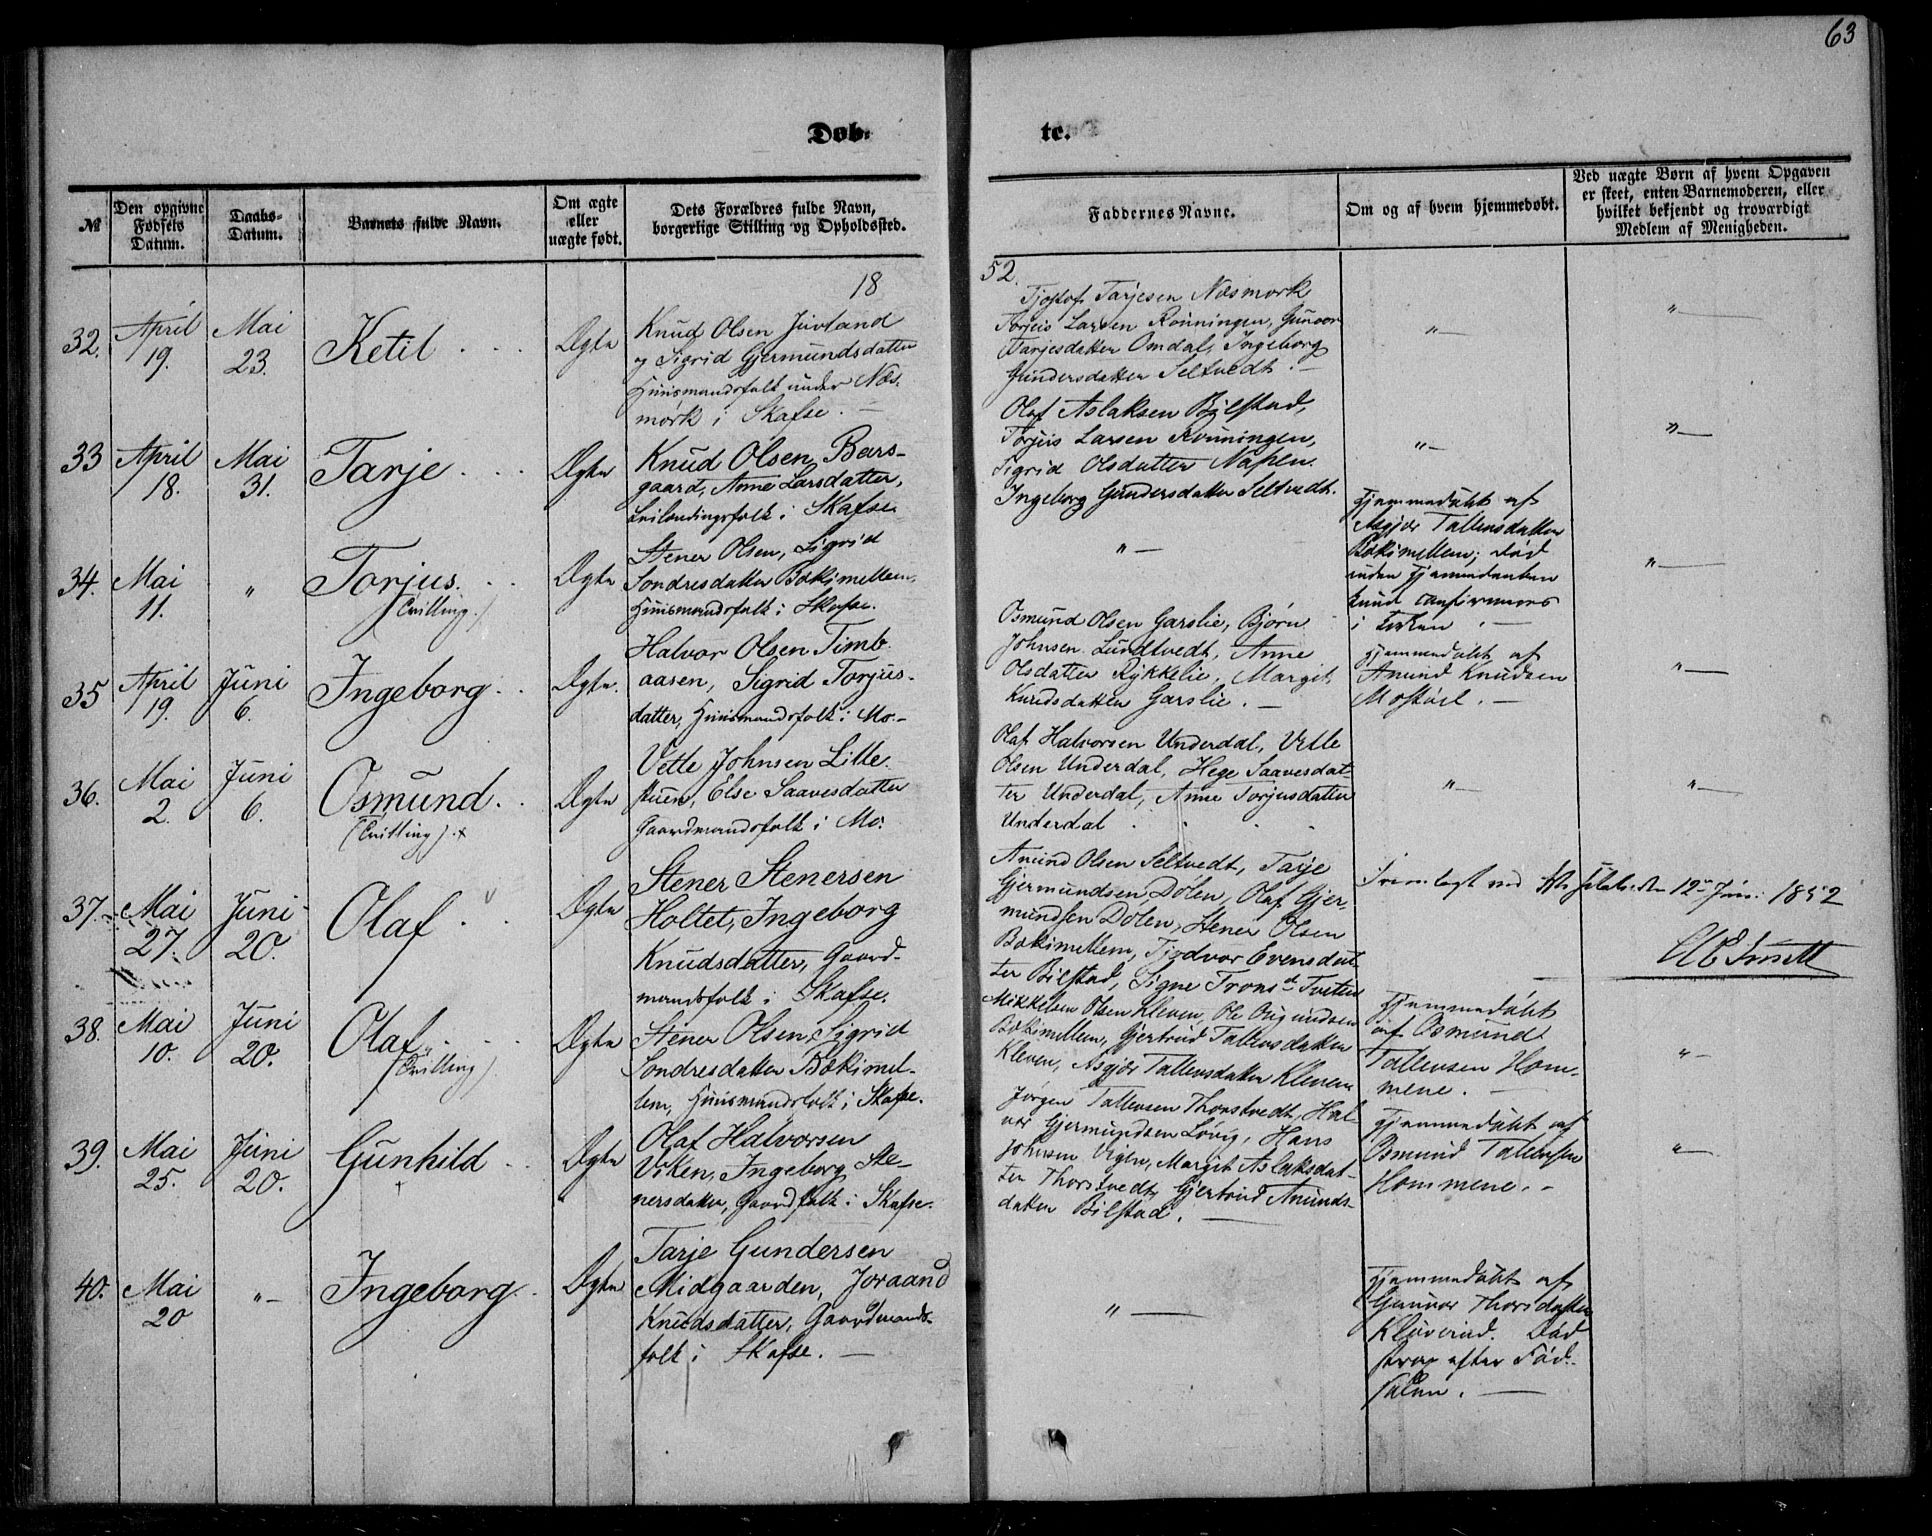 63
Døb- te.
№
Den opgivne Fødsels Datum.
Daabs-Datum.
Barnets fulde Navn.
Om ægte eller uægte født.
Dets Forældres fulde Navn, borgerlige Stilling og Opholdssted.
Faddernes Navne.
Om og af hvem hjemmedøbt.
Ved uægte Børn af hvem Opgaven er skeet, enten Barnemoderen, eller hvilket bekjendt og troværdigt Medlem af Menigheden.
18 52.
32. April 19. Mai 23. Ketil Ægte
Knud Olsen Juvland
og Sigrid Gjermundsdatter
Huusmandsfolk under Næs-
mork i Skafse. —
Tjostof Tarjesen Næsmork
Torjeis Larsen Rønningen, Gunvor
Tarjesdatter Omdal, Ingeborg
Gundersdatter Seltvedt. —
"— "—
33 April 18. Mai 31. Tarje Ægte
Knud Olsen Bers-
gaard, Anne Larsdatter,
Leilendingsfolk i Skafse
Olaf Aslaksen Bilstad,
Torjeis Larsen Rønningen,
Sigrid Olsdatter Napen.
Ingeborg Gundersdatter Seltvedt.
"— "—
34. Mai 11. " Torjus. (Tvilling.) Ægte
Stener Olsen, Sigrid
Sondresdatter Bøkimellem,
Huusmandsfolk i Skafse.
"—
Hjemmedøbt af
Asgjer Tallevsdatter
Bøkimellem; død
inden Hjemmedaaben
kunde confirmeres
i Kirken. —
"—
35 April 19. Juni 6. Ingeborg Ægte.
Halvor Olsen Timb-
aasen, Sigrid Torjus-
datter, Huusmandsfolk i Mo.-
Osmund Olsen Garslie, Bjørn
Johnsen Lundtvedt, Anne
Olsdatter Rykkelie, Margit
Knudsdatter Garslie. —
Hjemmedøbt af
Amund Knudsen
Mostøel. —
"—
36. Mai 2. Juni 6. Osmund. (Tvilling).x Ægte
Vetle Johnsen Lille-
stuen, Else Saavesdatter
Gaardmandsfolk i Mo.
Olaf Halvorsen Underdal, Vetle
Olsen Underdal, Hege Saavesdat-
ter Underdal, Anne Torjusdatter
Underdal
"— "—
37. Mai 27. Juni 20. Olaf Ægte
Stener Stenersen
Holtet, Ingeborg
Knudsdatter, Gaard-
mandsfolk i Skafse.
Amund Olsen Seltvedt, Tarje
Gjermundsen Dolen, Olaf Gjer-
mundsen Dolen, Stener Olsen
Bøkimellem, Tjodvor Evensdat-
ter Bilstad, Signe Tronsdt Tveiten
Fremlagt ved 12te Juni 1852
38. Mai 10. Juni 20. Olaf (Tvilling) Ægte
Stener Olsen, Sigrid
Sondresdatter Bøkimel-
lem, Huusmandsfolk i Skafse.
Mikkelsen Olsen Kleven, Ole Augundsen
Bøkimellem, Gjertrud Tallevsdatter
Kleven, Asgjer Tallevsdatter Kleven
Hjemmedøbt
af Osmund
Tallevsen Hom-
mene. —
"—
39. Mai 25. Juni 20. Gunhild Ægte
Olaf Halvorsen
Viken, Ingeborg Ste-
nersdatter, Gaardfolk i Skafse.
Jørgen Tallevsen Thorstvedt, Hal-
vor Gjermundsen Lovig, Hans
Johnsen Vigen, Margit Aslaksdat-
ter Thorstvedt, Gjertrud Amunds-
datter Bilstad. —
Hjemmedøbt af
Osmund Tallevsen
Hommene. -
"—
40. Mai 20 "— Ingeborg Ægte
Tarje Gundersen
Midgaarden, Joraand
Knudsdatter, Gaardmands-
folk i Skafse. —
"—
Hjemmedøbt af
Gunvor Thorsdatter
Død
strax efter Fød-
selen. —